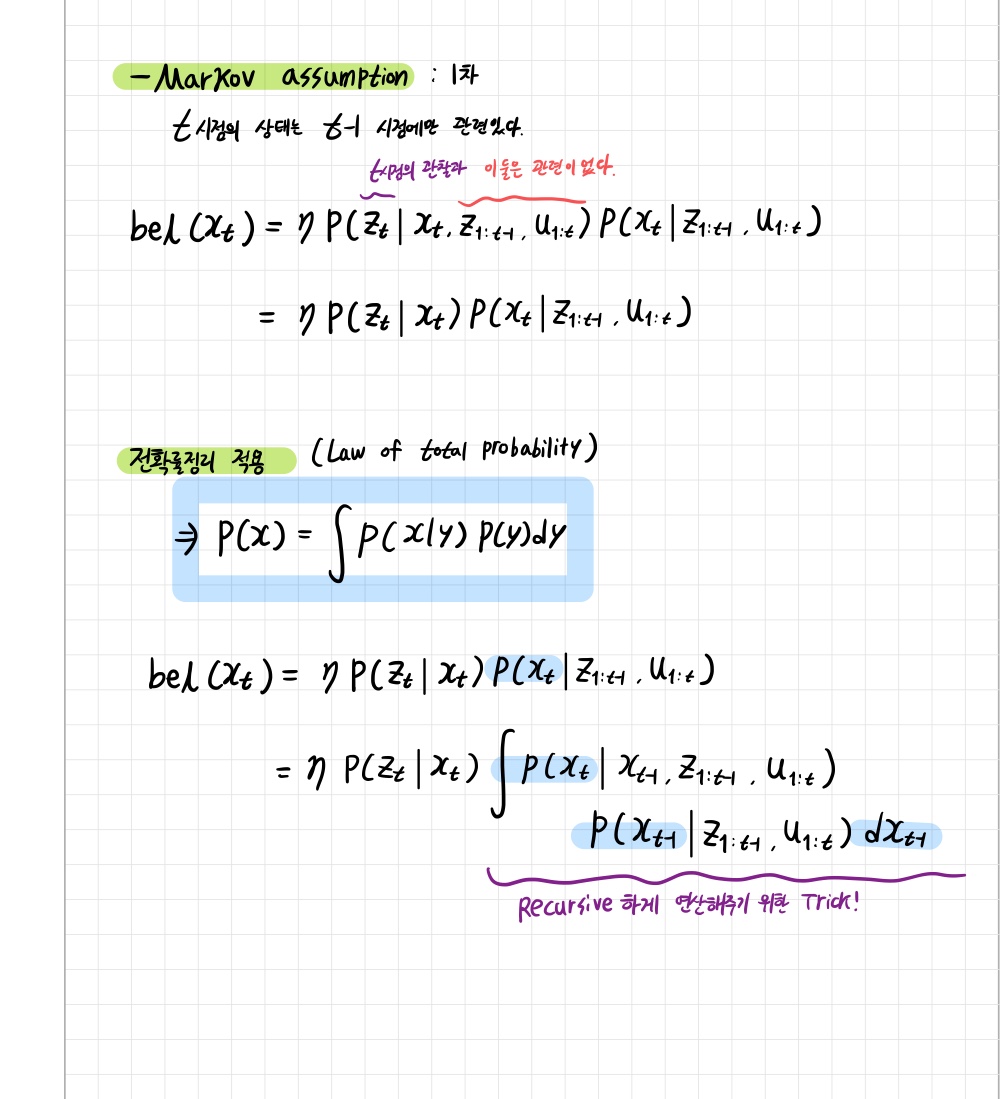 - Markov assumption : 1차
t 시점의 상태는 t-1 시점에만 관련있다.
t시점의 관찰과 이들은 관련이 없다.
bel(xₜ) = η P(zₜ | xₜ, z₁:ₜ₋₁, u₁:ₜ) P(xₜ | z₁:ₜ₋₁, u₁:ₜ)
= η P(zₜ | xₜ) P(xₜ | z₁:ₜ₋₁, u₁:ₜ)
전확률정리 적용 (Law of total probability)
⇒ P(x) = ∫ P(x|y) P(y)dy
bel(xₜ) = η P(zₜ | xₜ) P(xₜ | z₁:ₜ₋₁, u₁:ₜ)
= η P(zₜ | xₜ) ∫ P(xₜ | xₜ₋₁, z₁:ₜ₋₁, u₁:ₜ)
P(xₜ₋₁ | z₁:ₜ₋₁, u₁:ₜ) dxₜ₋₁
Recursive 하게 연산해주기 위한 Trick!